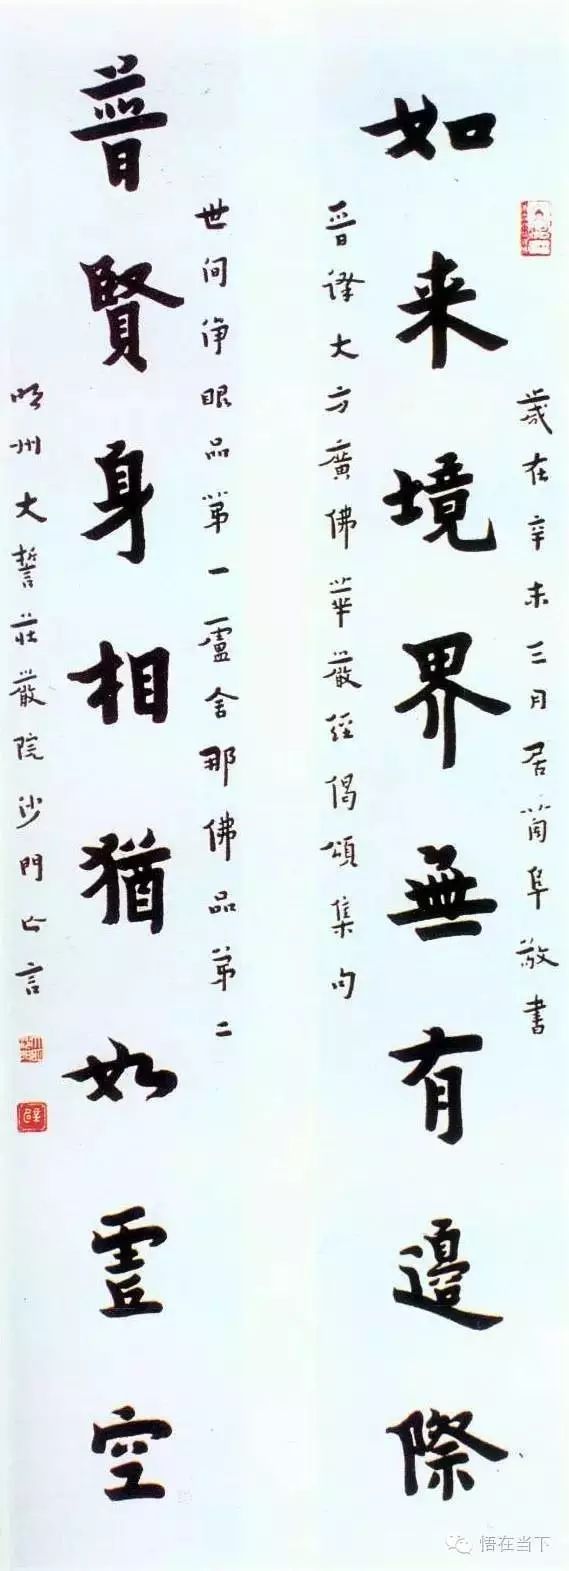 歲在辛未三月居阜敬書
如来境界無有邊際
晉譯大方廣佛華嚴經偈頌集句
世间淨眼品第一盧舍那佛品第二
普賢身相猶如虛空
明州大誓莊嚴院沙門亡言
悟在当下